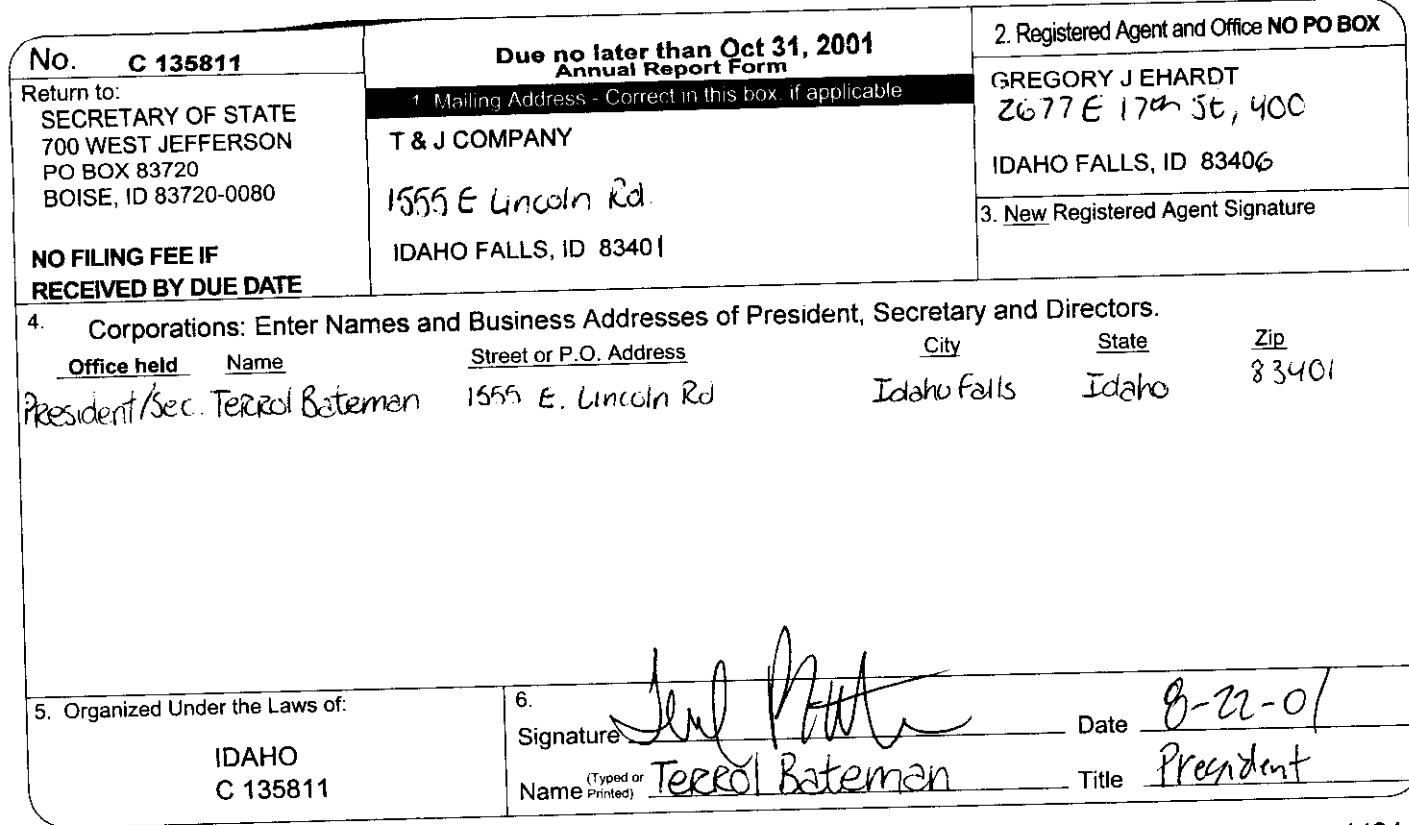 No. C 135811
Return to:
SECRETARY OF STATE
700 WEST JEFFERSON
PO BOX 83720
BOISE, ID 83720-0080
NO FILING FEE IF
RECEIVED BY DUE DATE
Due no later than Oct 31, 2001
Annual Report Form
1. Mailing Address - Correct in this box, if applicable
T & J COMPANY
1555 E Lincoln Rd.
IDAHO FALLS, ID 83401
2. Registered Agent and Office NO PO BOX
GREGORY J EHARDT
2677 E 17th St, 400
IDAHO FALLS, ID 83406
3. New Registered Agent Signature
4. Corporations: Enter Names and Business Addresses of President, Secretary and Directors.
Office held Name Street or P.O. Address City State Zip
President/Sec. Terrol Bateman 1555 E. Lincoln Rd Idaho Falls Idaho 83401
5. Organized Under the Laws of:
IDAHO
C 135811
6.
Signature Date 8-22-01
Name (Typed or Printed) Terrol Bateman Title President